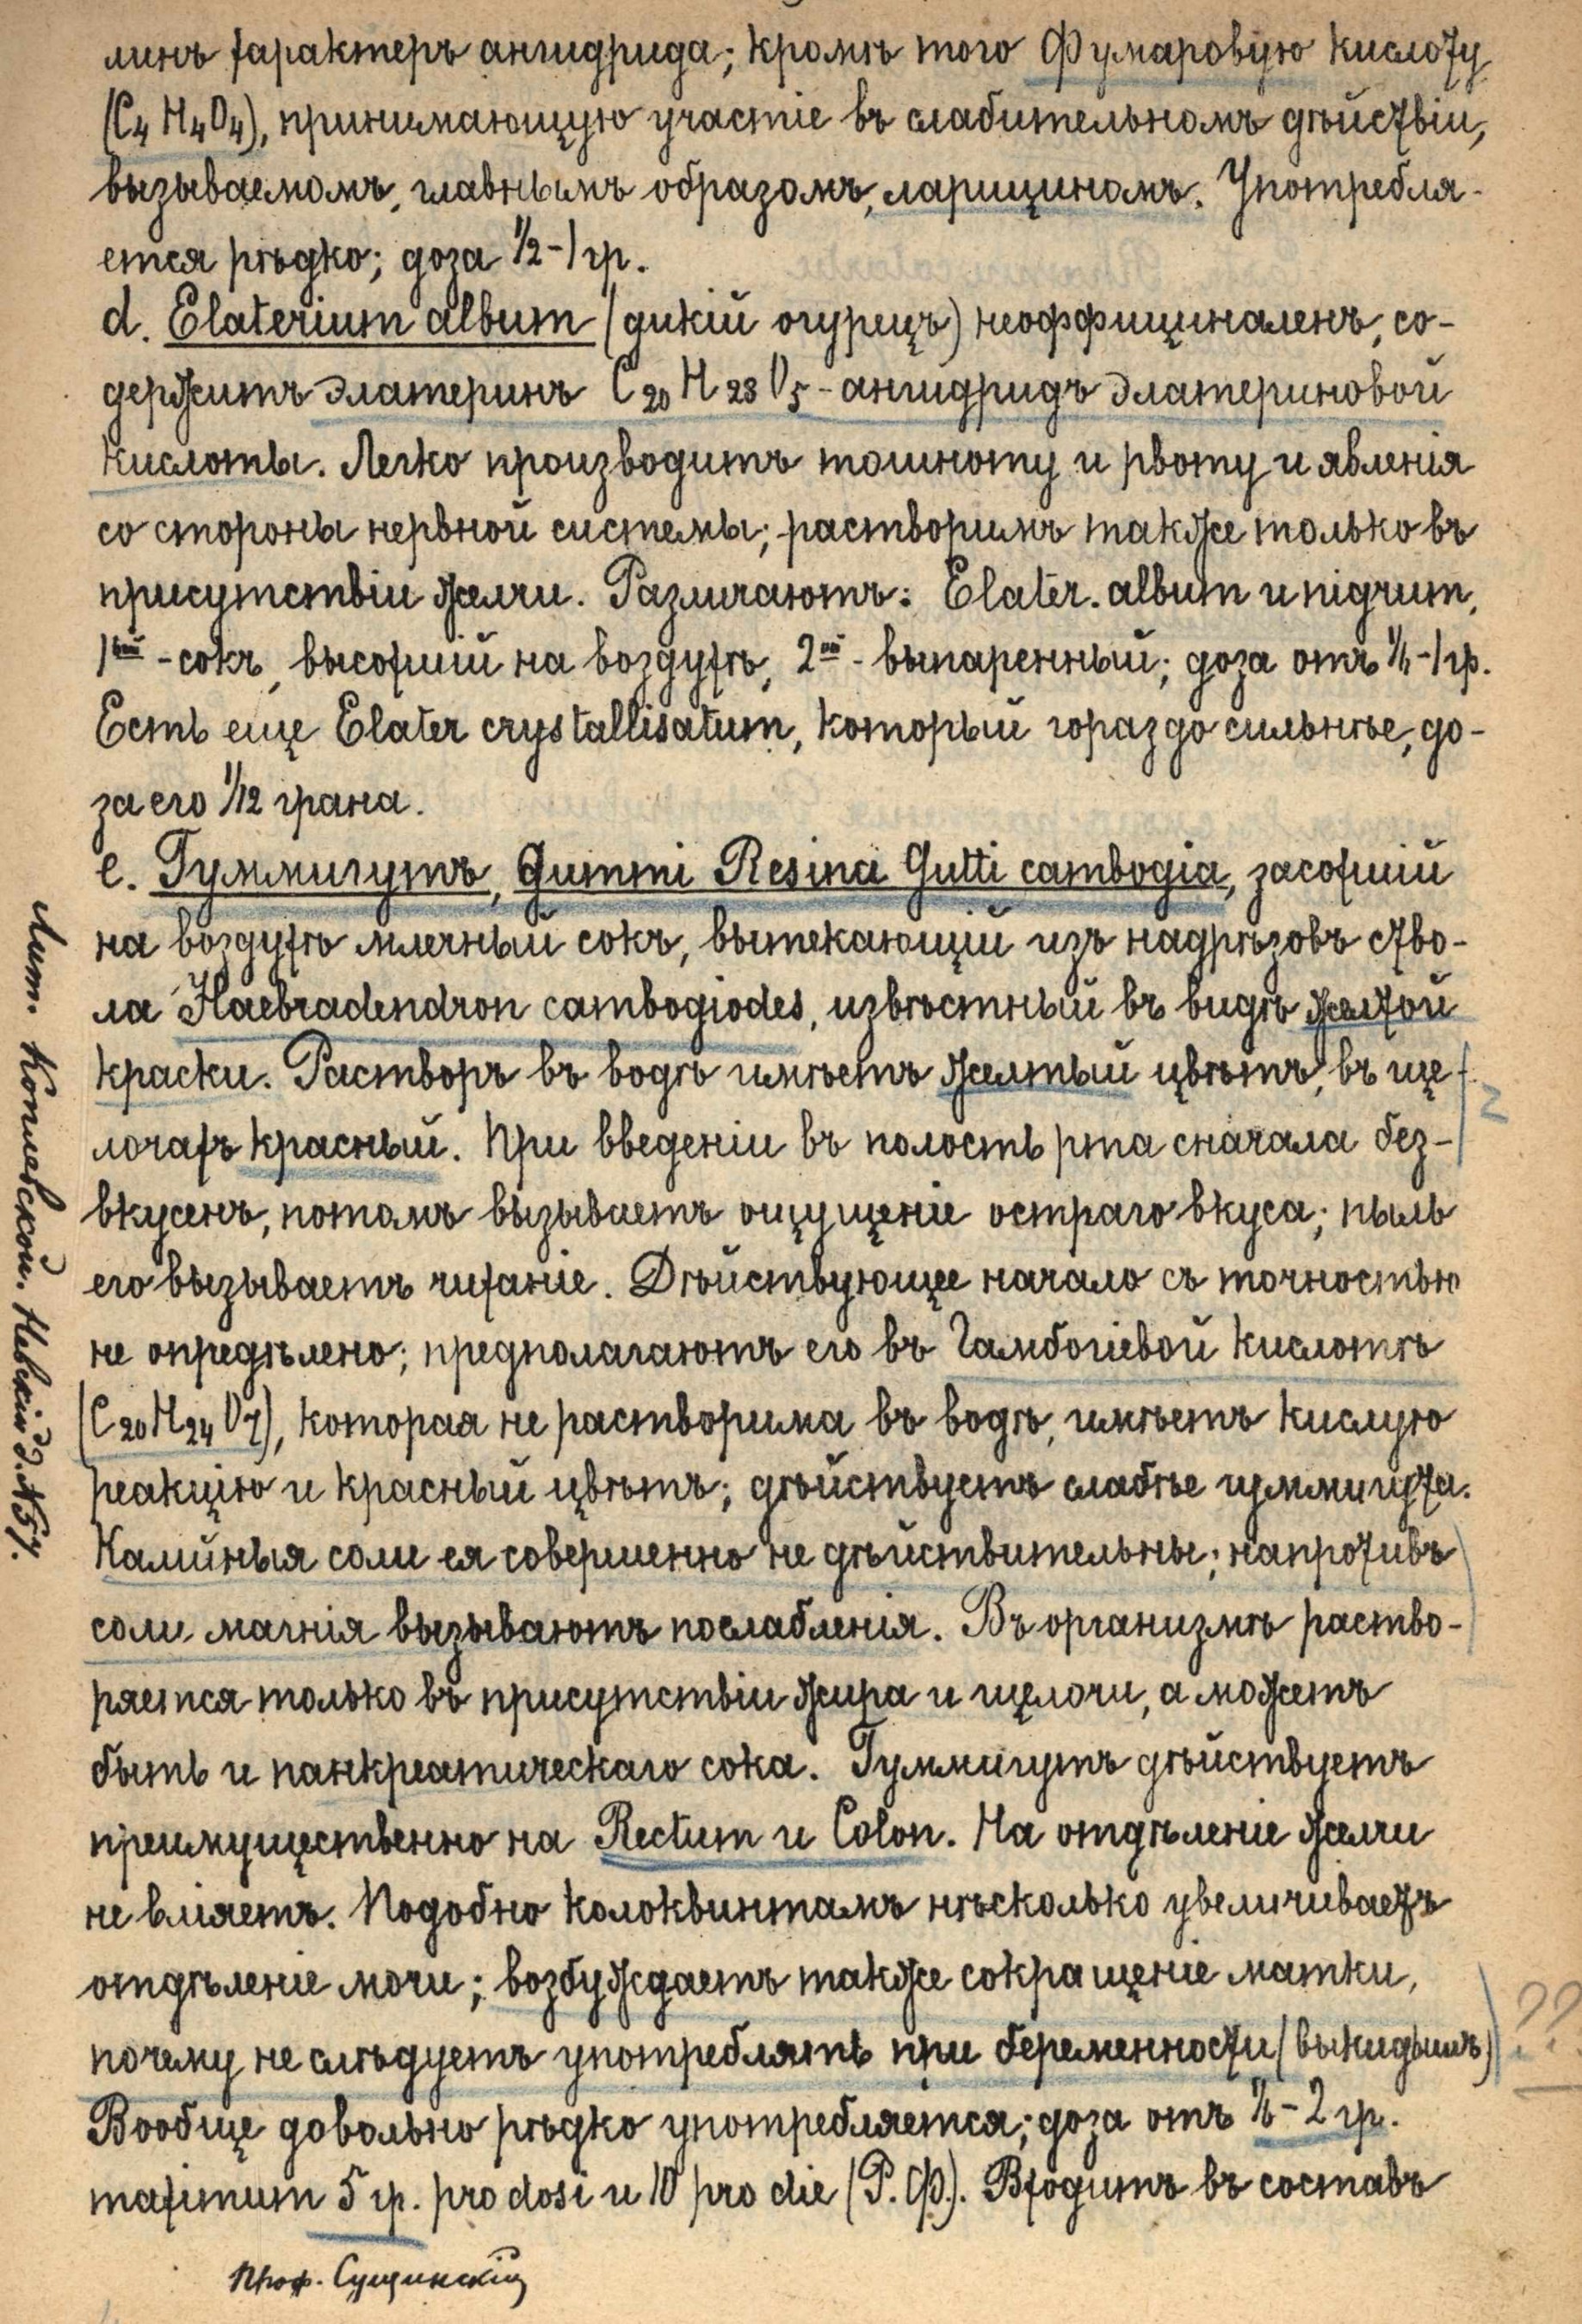 линъ характеръ ангидрида; кромѣ того Фумаровую кислоту
(C4 H4O4), принимающую участіе въ слабительномъ дѣйствіи,
вызываемомъ, главнымъ образомъ, ларициномъ. Употребля-
ется рѣдко; доза 1/2-1 гр.
d. Elaterium album (дикій огурецъ) неоффициналенъ, со-
держитъ элатеринъ C20 H28 O5 - ангидридъ элатериновой
кислоты. Легко производитъ тошноту и рвоту и явленія
со стороны нервной системы; растворимъ также только въ
присутствіи желчи. Различаютъ: Elater. album и nigrum,
1ый - сокъ, высохшій на воздухѣ, 2ой - выпаренный; доза отъ -1 гр.
Есть еще Elater crystallisatum, который гораздо сильнѣе, до-
за его 1/12 грана.
e. Гуммигутъ, Gummi Resina Gutti cambogia, засохшій
на воздухѣ млечный сокъ, вытекающій изъ надрѣзовъ ство-
ла Haebradendron cambogiodes, извѣстный въ видѣ желтой
краски. Растворъ въ водѣ имѣетъ желтый цвѣтъ, въ ще-
лочахъ красный. При введеніи въ полость рта сначала без-
вкусенъ, потомъ вызываетъ ощущеніе остраго вкуса; пыль
его вызываетъ чиханіе. Дѣйствующее начало съ точностью
не опредѣлено; предполагаютъ его въ Гамбогіевой кислотѣ
(C20H24O7), которая не растворима въ водѣ, имѣетъ кислую
реакцію и красный цвѣтъ; дѣйствуетъ слабѣе гуммигута.
Калійныя соли ея совершенно не дѣйствительны; напротивъ
соли магнія вызываютъ послабленія. Въ организмѣ раство-
ряется только въ присутствіи жира и щелочи, а можетъ
быть и панкреатическаго сока. Гуммигутъ дѣйствуетъ
преимущественно на Rectum и Colon. На отдѣленіе желчи
не вліяетъ. Подобно колоквинтамъ нѣсколько увеличиваетъ
отдѣленіе мочи; возбуждаетъ также сокращеніе матки,
почему не слѣдуетъ употреблять при беременности (выкидышъ)
??
Вообще довольно рѣдко употребляется; доза отъ - 2 гр.
maximum 5 гр. pro dosi и 10 pro die (Р. Ф.). Входитъ въ составъ
Проф. Сущинскій
Лит. Коплевской. Невскій д. №57.